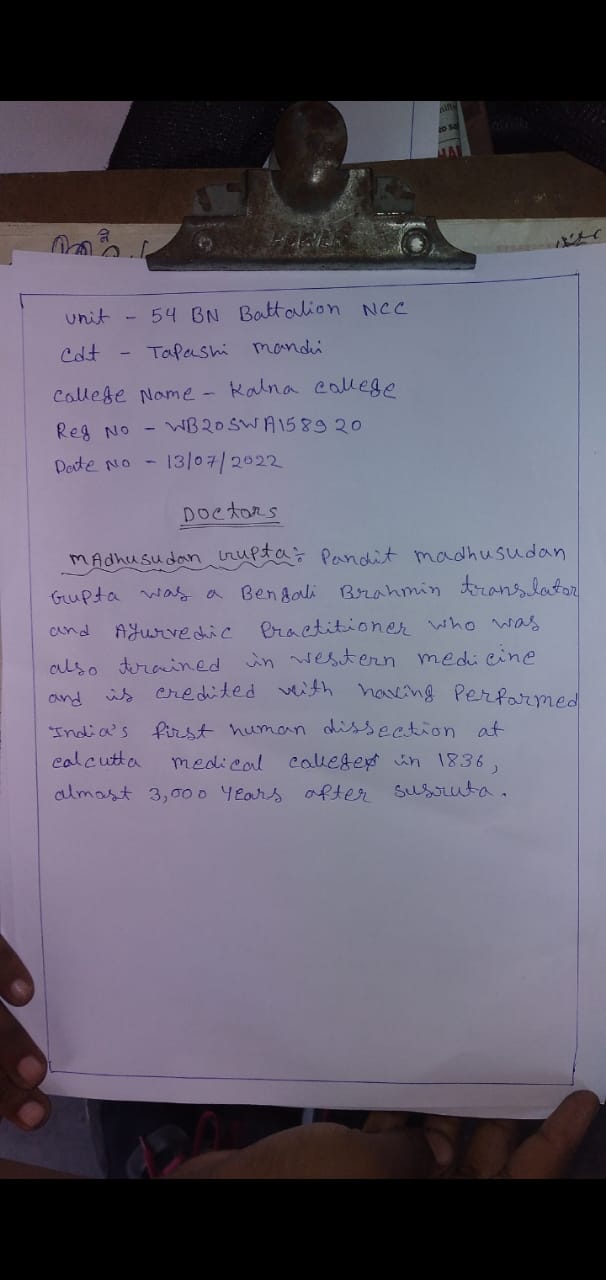 unit - 54 BN Battalion NCC
Cdt - Tapashi mandi
college Name - Kalna college
Reg No - WB20SWA158920
Date No - 13/07/2022
Doctors
MAdhusudan Gupta:- Pandit madhusudan
Gupta was a Bengali Brahmin translator
and Ayurvedic Practitioner who was
also trained in western medicine
and is credited with having Performed
India's first human dissection at
calcutta medical college in 1836,
almost 3,000 years after susruta.